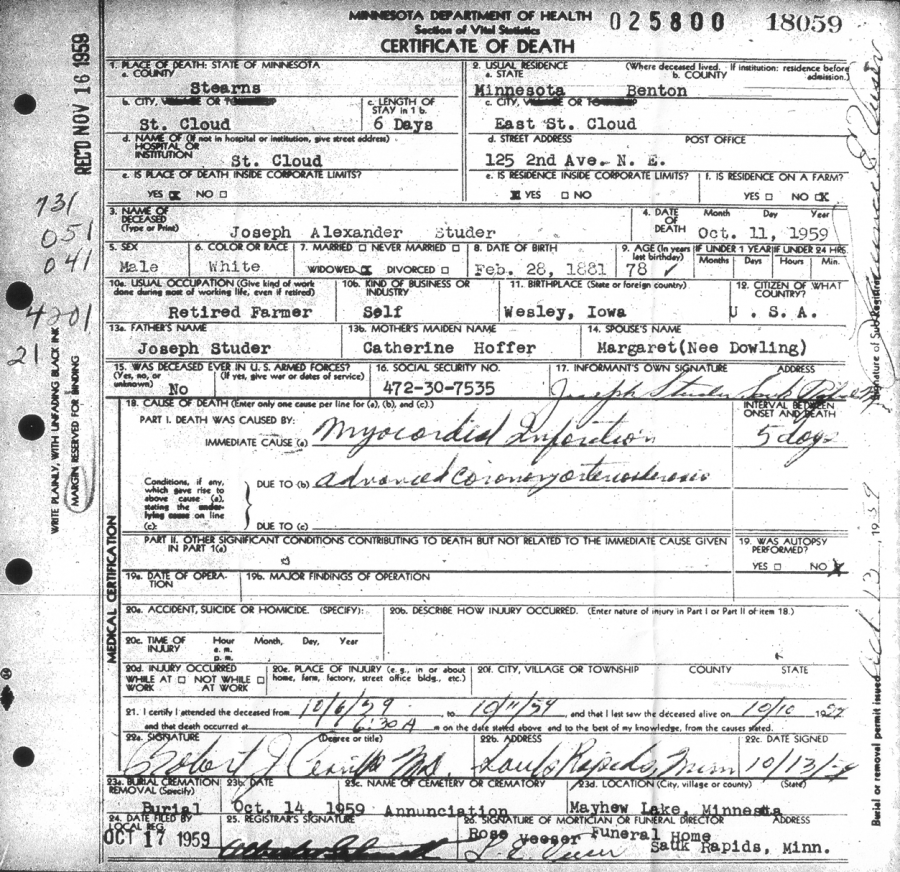 MINNESOTA DEPARTMENT OF HEALTH
Section of Vital Statistics
CERTIFICATE OF DEATH
025800 18059
REC'D NOV 16 1959
1. PLACE OF DEATH: STATE OF MINNESOTA
a. COUNTY
Stearns
2. USUAL RESIDENCE (Where deceased lived. If institution: residence before admission.)
a. STATE b. COUNTY
Minnesota Benton
b. CITY, VILLAGE OR TOWNSHIP
St. Cloud
c. LENGTH OF STAY in 1 b.
6 Days
c. CITY, VILLAGE OR TOWNSHIP
East St. Cloud
d. NAME OF (If not in hospital or institution, give street address)
HOSPITAL OR
INSTITUTION St. Cloud
d. STREET ADDRESS POST OFFICE
125 2nd Ave. N. E.
e. IS PLACE OF DEATH INSIDE CORPORATE LIMITS?
YES X NO
e. IS RESIDENCE INSIDE CORPORATE LIMITS?
X YES NO
f. IS RESIDENCE ON A FARM?
YES NO X
731
051
041
4201
21
3. NAME OF DECEASED (Type or Print)
Joseph Alexander Studer
4. DATE OF DEATH Month Day Year
Oct. 11, 1959
5. SEX
Male
6. COLOR OR RACE
White
7. MARRIED NEVER MARRIED
WIDOWED X DIVORCED
8. DATE OF BIRTH
Feb. 28, 1881
9. AGE (In years last birthday)
78 ✓
IF UNDER 1 YEAR IF UNDER 24 HRS.
Months Days Hours Min.
10a. USUAL OCCUPATION (Give kind of work
done during most of working life, even if retired)
Retired Farmer
10b. KIND OF BUSINESS OR INDUSTRY
Self
11. BIRTHPLACE (State or foreign country)
Wesley, Iowa
12. CITIZEN OF WHAT COUNTRY?
U. S. A.
13a. FATHER'S NAME
Joseph Studer
13b. MOTHER'S MAIDEN NAME
Catherine Hoffer
14. SPOUSE'S NAME
Margaret(Nee Dowling)
15. WAS DECEASED EVER IN U. S. ARMED FORCES?
(Yes, no, or unknown) (If yes, give war or dates of service)
No
16. SOCIAL SECURITY NO.
472-30-7535
17. INFORMANT'S OWN SIGNATURE ADDRESS
Joseph Studer Sauk Rapids
18. CAUSE OF DEATH (Enter only one cause per line for (a), (b), and (c).)
INTERVAL BETWEEN ONSET AND DEATH
PART I. DEATH WAS CAUSED BY:
IMMEDIATE CAUSE (a) Myocordial Inforction
5 days
Conditions, if any,
which gave rise to
above cause (a),
stating the under-
lying cause on line
(c):
DUE TO (b) advanced coronary arteriosclerosis
DUE TO (c)
PART II. OTHER SIGNIFICANT CONDITIONS CONTRIBUTING TO DEATH BUT NOT RELATED TO THE IMMEDIATE CAUSE GIVEN
IN PART 1(a)
19. WAS AUTOPSY PERFORMED?
YES NO X
19a. DATE OF OPERA-
TION
19b. MAJOR FINDINGS OF OPERATION
20a. ACCIDENT, SUICIDE OR HOMICIDE. (SPECIFY):
20b. DESCRIBE HOW INJURY OCCURRED. (Enter nature of injury in Part I or Part II of item 18.)
20c. TIME OF INJURY
Hour Month, Day, Year
a. m.
p. m.
20d. INJURY OCCURRED
WHILE AT WORK NOT WHILE AT WORK
20e. PLACE OF INJURY (e. g., in or about
home, farm, factory, street office bldg., etc.)
20f. CITY, VILLAGE OR TOWNSHIP COUNTY STATE
21. I certify I attended the deceased from 10/6/59 to 10/11/59, and that I last saw the deceased alive on 10/10 1959
and that death occurred at 6:30 A m on the date stated above and to the best of my knowledge, from the causes stated.
22a. SIGNATURE (Degree or title)
Robert J. MD
22b. ADDRESS
Sauk Rapids, Minn
22c. DATE SIGNED
10/13/59
23a. BURIAL CREMATION
REMOVAL (Specify)
Burial
23b. DATE
Oct. 14, 1959
23c. NAME OF CEMETERY OR CREMATORY
Annunciation
23d. LOCATION (City, village or county) (State)
Mayhew Lake, Minnesota
24. DATE FILED BY LOCAL REG.
OCT 17 1959
25. REGISTRAR'S SIGNATURE
26. SIGNATURE OF MORTICIAN OR FUNERAL DIRECTOR ADDRESS
Rose Veeser Funeral Home
L. E. Veeser Sauk Rapids, Minn.
WRITE PLAINLY, WITH UNFADING BLACK INK
MARGIN RESERVED FOR BINDING
MEDICAL CERTIFICATION
Burial or removal permit issued Oct. 13, 1959
Signature of Sub-Registrar